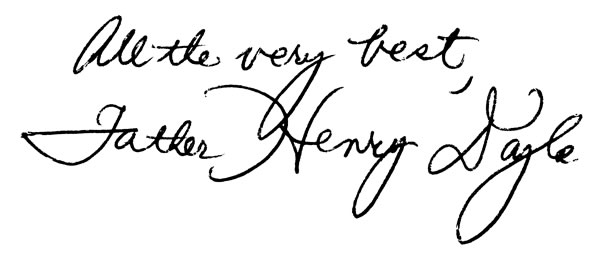 All the very best,
Father Henry Doyle